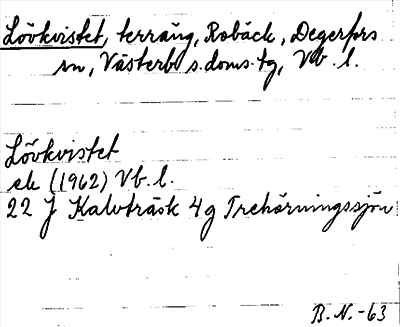 Lövkvistet, terräng, Robäck, Degerfors
sn, Västerb s.doms.tg, Vb. l.
Lövkvistet
ek (1962) Vb. l.
22 J Kalvträsk 4g Trehörningssjön
B. N. -63